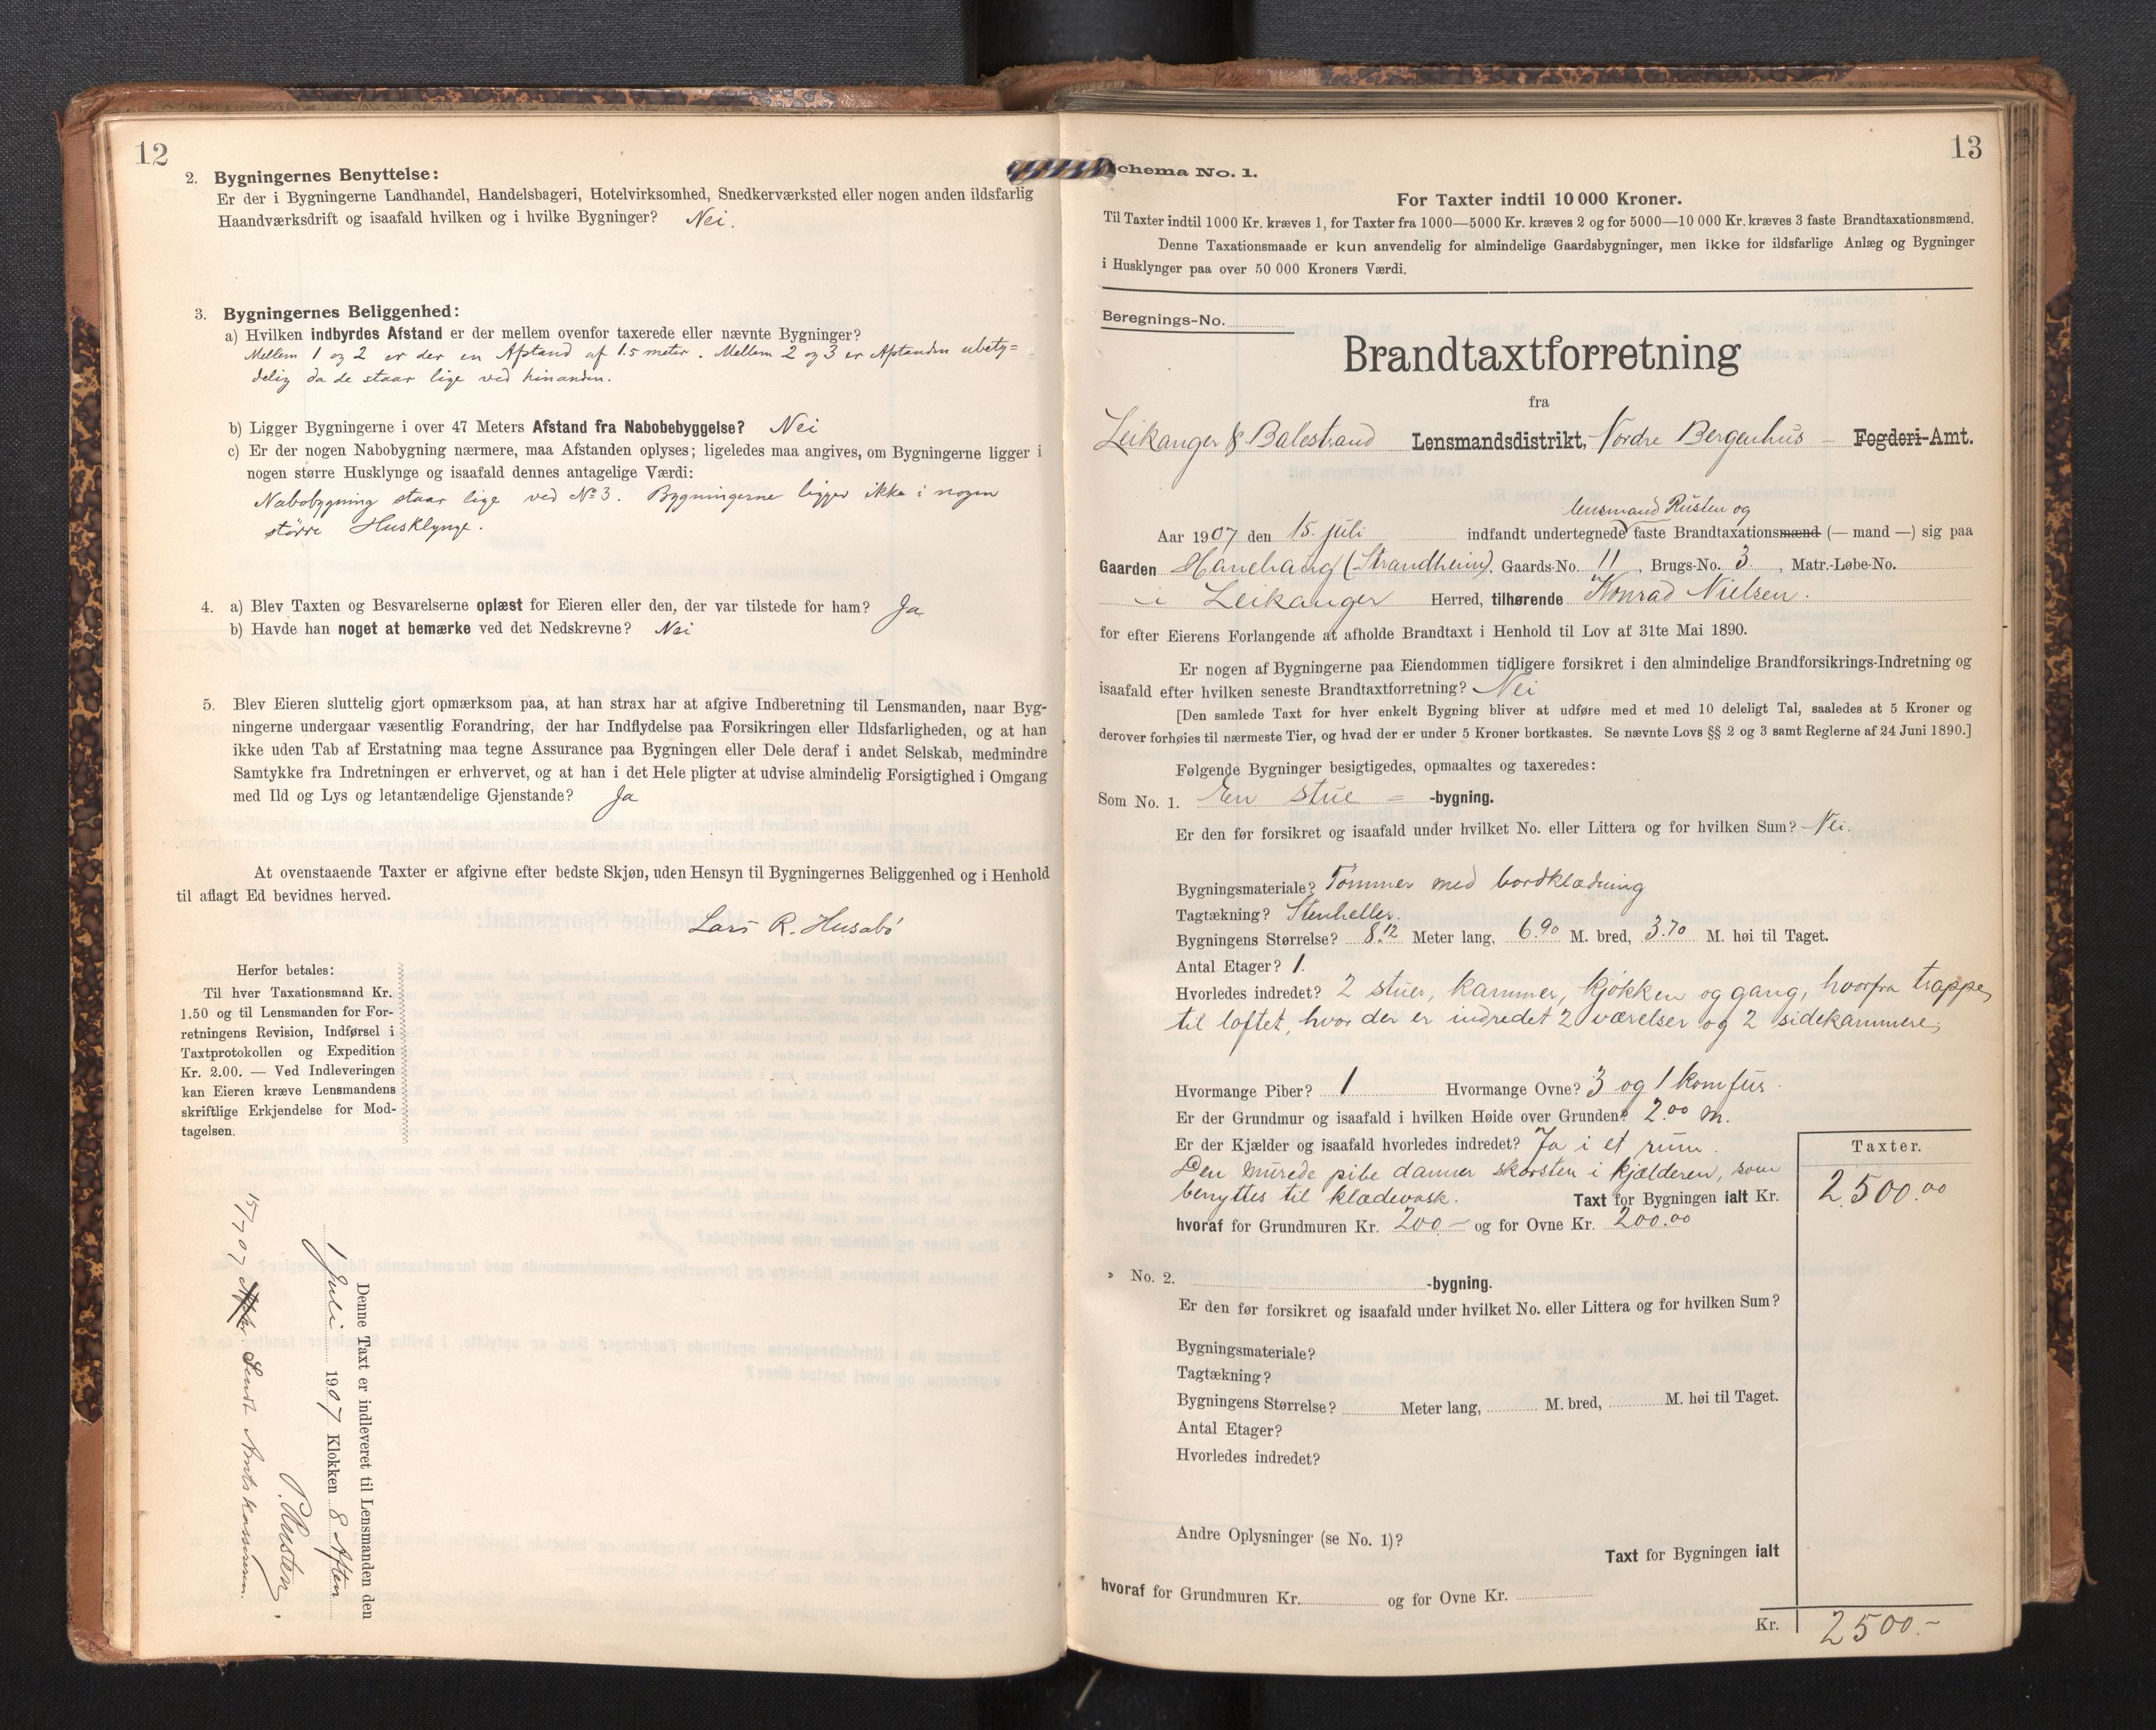 12
2. Bygningernes Benyttelse:
Er der i Bygningerne Landhandel, Handelsbageri, Hotelvirksomhed, Snedkerværksted eller nogen anden ildsfarlig
Haandværksdrift og isaafald hvilken og i hvilke Bygninger? Nei.
3. Bygningernes Beliggenhed:
a) Hvilken indbyrdes Afstand er der mellem ovenfor taxerede eller nævnte Bygninger?
Mellem 1 og 2 er der en Afstand af 1.5 meter. Mellem 2 og 3 er Afstanden ubety=
delig da de staar lige ved hinanden.
b) Ligger Bygningerne i over 47 Meters Afstand fra Nabobebyggelse? Nei
c) Er der nogen Nabobygning nærmere, maa Afstanden oplyses; ligeledes maa angives, om Bygningerne ligger i
nogen større Husklynge og isaafald dennes antagelige Værdi:
Nabobygning staar lige ved No 3. Bygningerne ligger ikke i nogen
større Husklynge.
4. a) Blev Taxten og Besvarelserne oplæst for Eieren eller den, der var tilstede for ham? Ja
b) Havde han noget at bemærke ved det Nedskrevne? Nei
5. Blev Eieren sluttelig gjort opmærksom paa, at han strax har at afgive Indberetning til Lensmanden, naar Byg-
ningerne undergaar væsentlig Forandring, der har Indflydelse paa Forsikringen eller Ildsfarligheden, og at han
ikke uden Tab af Erstatning maa tegne Assurance paa Bygningen eller Dele deraf i andet Selskab, medmindre
Samtykke fra Indretningen er erhvervet, og at han i det Hele pligter at udvise almindelig Forsigtighed i Omgang
med Ild og Lys og letantændelige Gjenstande? Ja
At ovenstaaende Taxter er afgivne efter bedste Skjøn, uden Hensyn til Bygningernes Beliggenhed og i Henhold
til aflagt Ed bevidnes herved.
Lars R. Husabø
Herfor betales:
Til hver Taxationsmand Kr.
1.50 og til Lensmanden for For-
retningens Revision, Indførsel i
Taxtprotokollen og Expedition
Kr. 2.00. — Ved Indleveringen
kan Eieren kræve Lensmandens
skriftlige Erkjendelse for Mod-
tagelsen.
Denne Taxt er indleveret til Lensmanden den
1 Juli 1907 Klokken 8 Aften
P. Rusten.
15/7 07 Sendt Amtskassereren.
13
Schema No. 1.
For Taxter indtil 10 000 Kroner.
Til Taxter indtil 1000 Kr. kræves 1, for Taxter fra 1000—5000 Kr. kræves 2 og for 5000—10 000 Kr. kræves 3 faste Brandtaxationsmænd.
Denne Taxationsmaade er kun anvendelig for almindelige Gaardsbygninger, men ikke for ildsfarlige Anlæg og Bygninger
i Husklynger paa over 50 000 Kroners Værdi.
Beregnings-No.
Brandtaxtforretning
fra
Leikanger & Balestrand Lensmandsdistrikt, Nordre Bergenhus – Fogderi-Amt.
lensmand Rusten og
Aar 1907 den 15. juli indfandt undertegnede faste Brandtaxationsmænd (— mand —) sig paa
Gaarden Hanehaug (Strandheim). Gaards-No. 11, Brugs-No. 3, Matr.-Løbe-No.
i Leikanger Herred, tilhørende Konrad Nielsen.
for efter Eierens Forlangende at afholde Brandtaxt i Henhold til Lov af 31te Mai 1890.
Er nogen af Bygningerne paa Eiendommen tidligere forsikret i den almindelige Brandforsikrings-Indretning og
isaafald efter hvilken seneste Brandtaxtforretning? Nei
[Den samlede Taxt for hver enkelt Bygning bliver at udføre med et med 10 deleligt Tal, saaledes at 5 Kroner og
derover forhøies til nærmeste Tier, og hvad der er under 5 Kroner bortkastes. Se nævnte Lovs §§ 2 og 3 samt Reglerne af 24 Juni 1890.]
Følgende Bygninger besigtigedes, opmaaltes og taxeredes:
Som No. 1. En stue = -bygning.
Er den før forsikret og isaafald under hvilket No. eller Littera og for hvilken Sum? Nei.
Bygningsmateriale? Tømmer med bordklædning
Tagtækning? Stenheller.
Bygningens Størrelse? 8.12 Meter lang, 6.90 M. bred, 3.70 M. høi til Taget.
Antal Etager? 1.
Hvorledes indredet? 2 stuer, kammer, kjøkken og gang, hvorfra trappe
til loftet, hvor der er indredet 2 værelser og 2 sidekammere;
Hvormange Piber? 1 Hvormange Ovne? 3 og 1 komfur.
Er der Grundmur og isaafald i hvilken Høide over Grunden? 2.00 m.
Er der Kjælder og isaafald hvorledes indredet? Ja i et rum.
Taxter.
Den murede pibe danner skorsten i kjælderen, som
benyttes til klædevask. Taxt for Bygningen ialt Kr. 2500.00
hvoraf for Grundmuren Kr. 200 – og for Ovne Kr. 200.00
» No. 2. -bygning.
Er den før forsikret og isaafald under hvilket No. eller Littera og for hvilken Sum?
Bygningsmateriale?
Tagtækning?
Bygningens Størrelse? Meter lang, M. bred, M. høi til Taget.
Antal Etager?
Hvorledes indredet?
Andre Oplysninger (se No. 1)?
Taxt for Bygningen ialt
hvoraf for Grundmuren Kr. og for Ovne Kr.
Kr. 2500.–